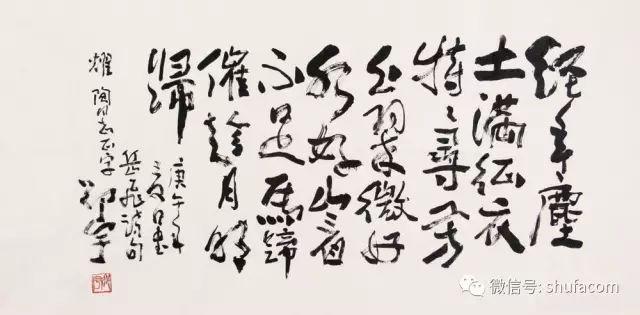 經年塵
土滿征衣
特々尋芳
上翠微好
水好山看
不足馬蹄
催趁月明
歸
庚午年
夏日書
岳飛诗句
耀陶同志正字
微信号: shufacom